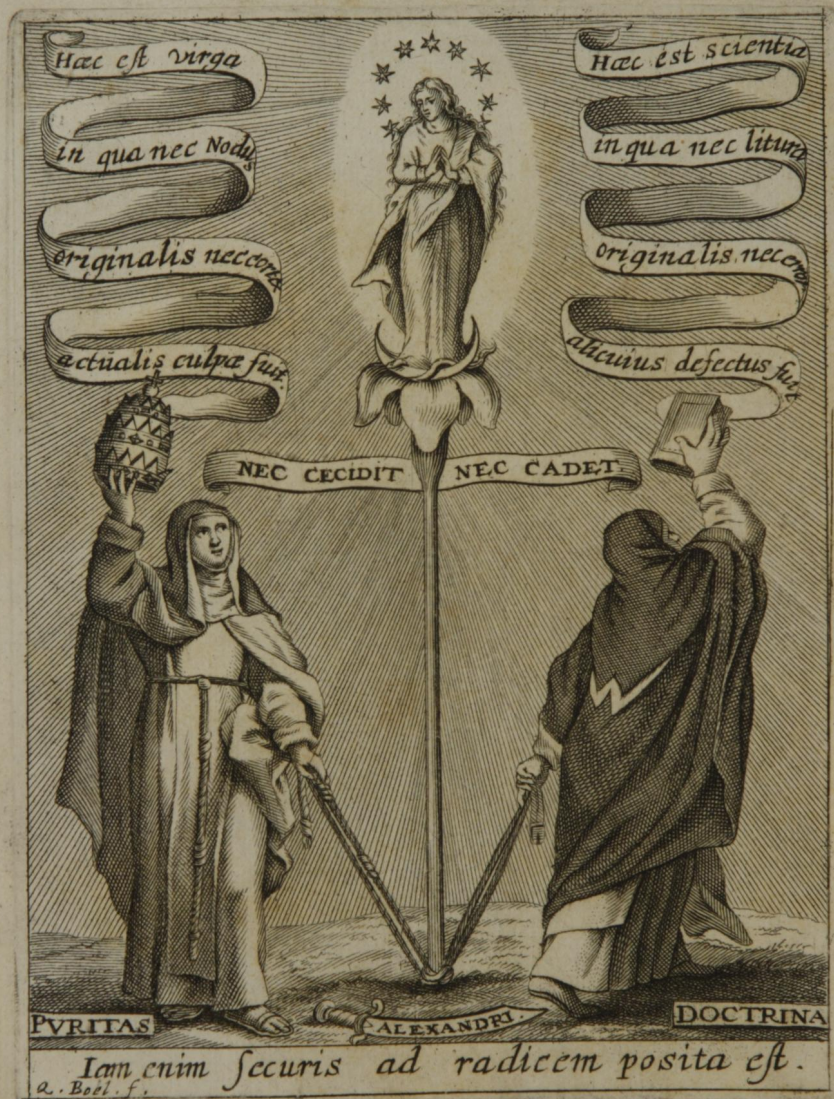 Hæc est virga
in qua nec Nodus
originalis nec cortex
actualis culpæ fuit.
Hæc est scientia
in qua nec litura
originalis nec error
alicuius defectus fuit
NEC CECIDIT NEC CADET
PVRITAS
ALEXANDRI.
DOCTRINA
Iam enim securis ad radicem posita est.
Q. Boel. f.